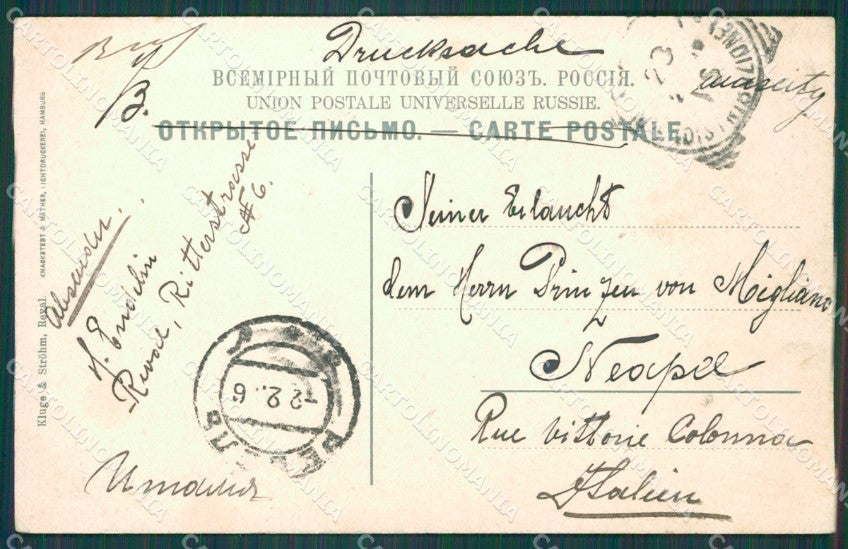 Drucksache
ВСЕМІРНЫЙ ПОЧТОВЫЙ СОЮЗЪ. РОССІЯ.
UNION POSTALE UNIVERSELLE RUSSIE.
ОТКРЫТОЕ ПИСЬМО. — CARTE POSTALE.
B.
Absender.
J. Endelin
Reval, Ritterstrasse
№ 6.
Seiner Erlaucht
dem Herrn Prinzen von Migliano
Neapel
Rue Vittorie Colonna
Italien
Италия
РЕВЕЛЬ
-2.2.6
Kluge & Ströhm, Reval.
KNACKSTEDT & NÄTHER, LICHTDRUCKEREI, HAMBURG
CARTOLINOMANIA